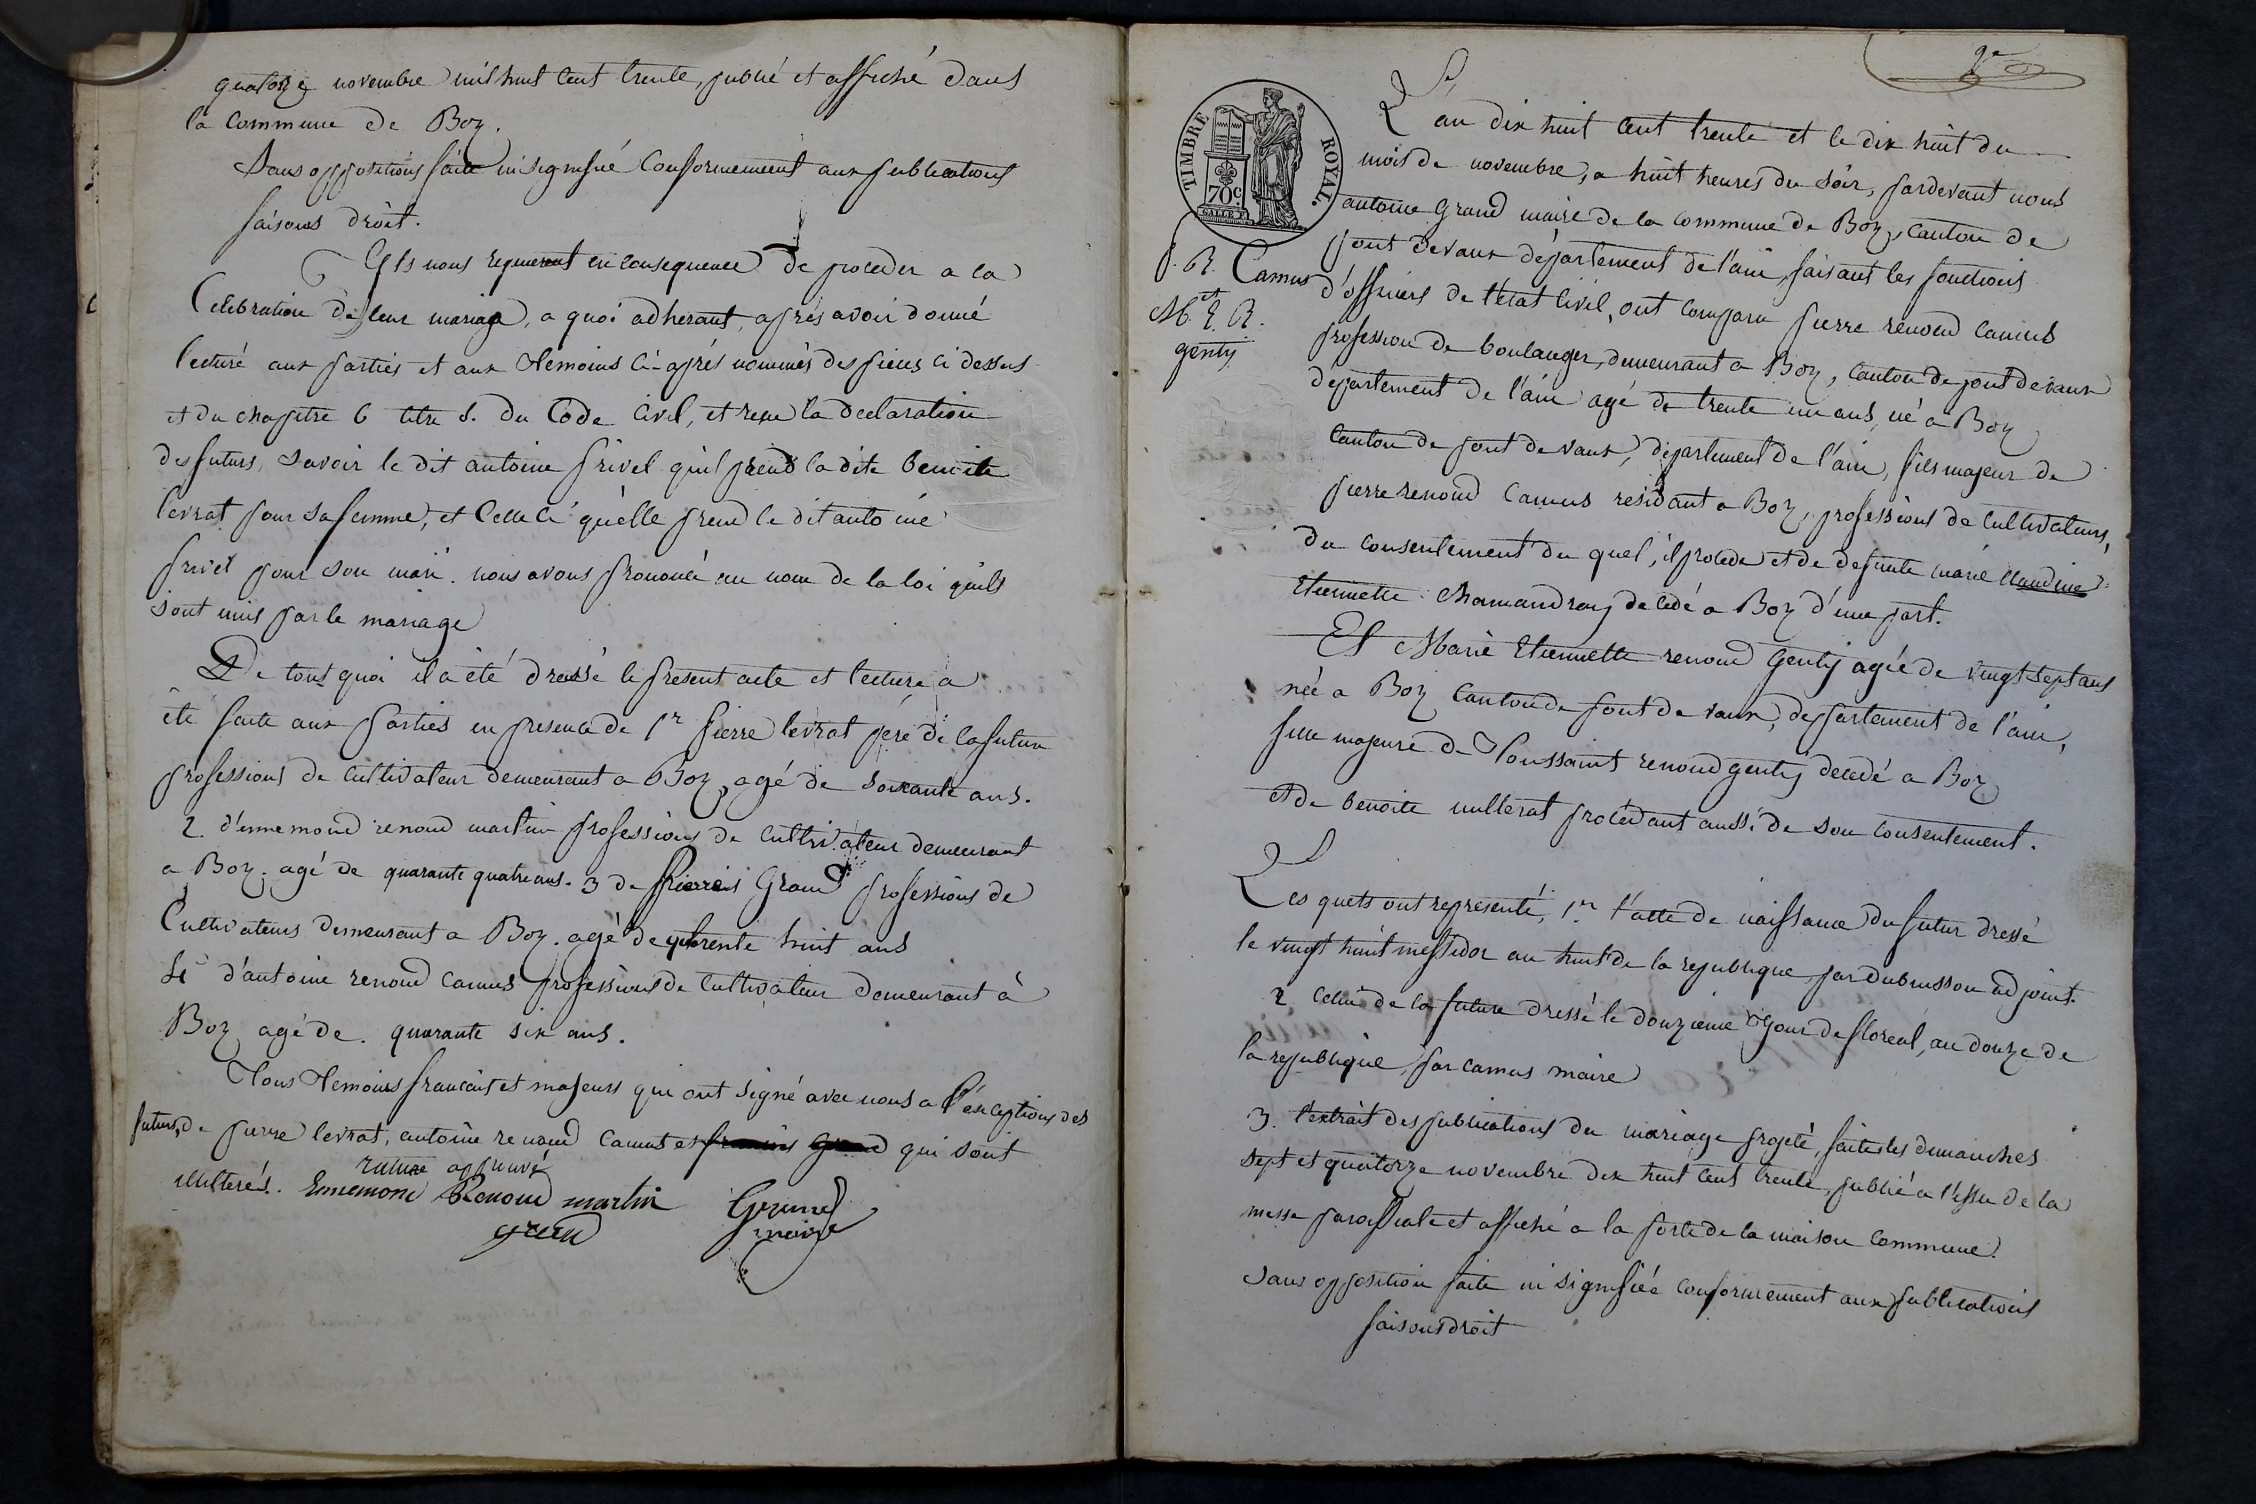 quatorze novembre mil huit cent trente, publié et affiché dans
la commune de Boz.
Sans oppositions faite ni signifié conformement aux publications
faisons droit.
Ils nous requierent en consequence de proceder a la
Celebration de leur mariage, a quoi adherant, aprés avoir donné
lecturé aux partiés et aux temoins ci-aprés nommés des pieces ci dessus
et du chapitre 6 titre 5. du Code Civil, et reçu la declaration
des futurs, savoir le dit antoine privel qu'il prend la dite benoite
levrat pour sa femme, et Celle ci qu'elle prend le dit antoine
privel pour son mari. nous avons prononcé au nom de la loi qu'ils
sont unis par le mariage
De tout quoi il a été dressé le present acte et lecture a
été faite aux partiés en presence de 1er pierre levrat pere de la future
professions de cultivateur demeurant a Boz, agé de soixante ans.
2. d'ennemond renoud martin professions de cultivateur demeurant
a Boz. agé de quarante quatre ans. 3 de Grand professions de
Cultivateurs demeurant a Boz. agé de trente huit ans
4 d'antoine renoud camus professions de cultivateur demeurant à
Boz agé de. quarante six ans.
Tous temoins francais et majeurs qui ont signé avec nous a l'éxceptions des
futurs, de pierre levrat, antoine renoud camus et qui sont
illiterés. rature approuvé
Ennemond Renoud martin Grand
grand maire
2e
TIMBRE ROYAL.
70c
L'an dix huit cent trente et le dix huit du
mois de novembre, a huit heures du soir, pardevant nous
antoine grand maire de la commune de Boz, canton de
pont devaux département de l'ain, faisant les fonctions
p. R. Camus
et
M. E. R.
genty
d'officiers de l'état Civil, ont comparu pierre renoud camus
profession de boulanger, demeurant a Boz, canton de pont de vaux
departement de l'ain agé de trente un ans, né a Boz
canton de pont de vaux, departement de l'ain, fils majeur de
pierre renoud camus residant a Boz, professions de cultivateurs,
du consentement du quel, il procede et de defunte marie claudine
etiennette Chamandray decedé a Boz d'une part.
Et Marie Etiennette renoud Genty agée de vingt sept ans
née a Boz canton de pont de vaux, departement de l'ain,
fille majeure de Toussaint renoud genty decedé a Boz
et de benoite procedant aussi de son consentement.
Les quels ont representé, 1er l'acte de naissance du futur dressé
le vingt huit messidor an huit de la republique par dubuisson adjoint.
2 celui de la future dressé le douzieme jour de floreal, an douze de
la republique par camus maire
3. l'extrait des publications du mariage projeté, faites les dimanches
sept et quatorze novembre dix huit cent trente, publié a l'issu de la
messe paroissiale et affiché a la porte de la maison commune.
Sans opposition faite ni signifiée conformement aux publications
faisons droit